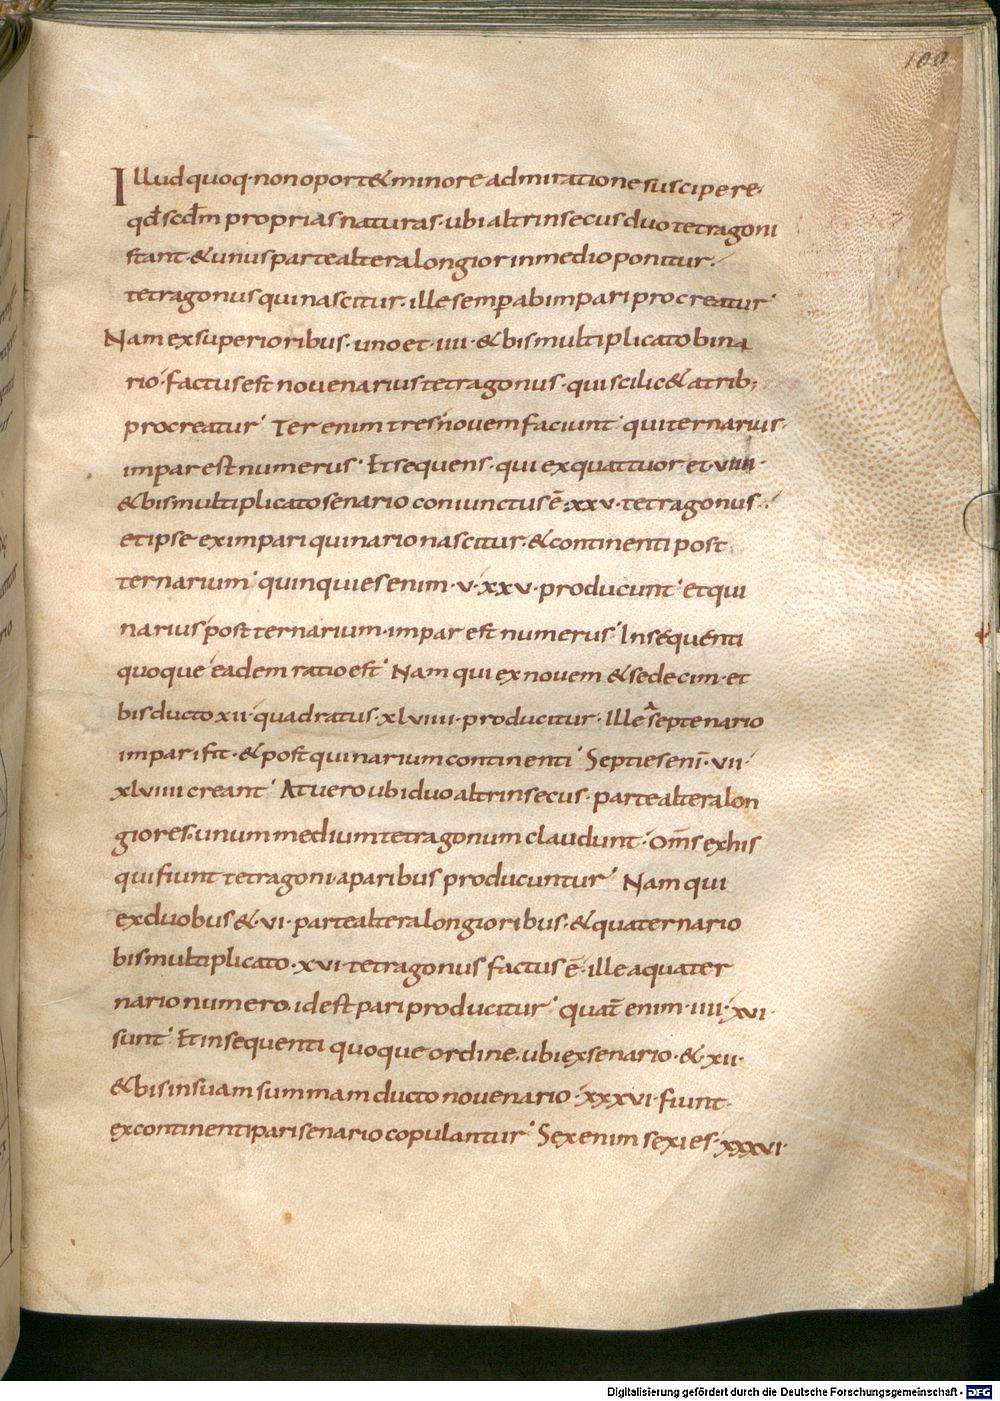 100
Illud quoq· non oport& minore admiratione suscipere·
qđ scd̄m proprias naturas· ubi altrinsecus duo tetragoni
stant· & unus parte altera longior in medio ponitur·
tetragonus qui nascitur· ille semp̄ ab impari procreatur
Nam ex superioribus· uno et· IIII· & bis multiplicato bina
rio· factus est novenarius tetragonus· qui scilic& a trib;
procreatur Ter enim tres novem faciunt qui ternarius·
impar est numerus Et sequens· qui ex quattuor et· VIIII·
& bis multiplicato senario coniunctus ē· XXV· tetragonus·
et ipse ex impari quinario nascitur· & continenti post
ternarium quinquies enim· V· XXV· producunt et qui
narius post ternarium· impar est numerus In sequenti
quoque eadem ratio est Nam qui ex novem & sedecim· et
bis ducto XII· quadratus· XLVIIII· producitur· Ille a septenario
impari fit· & post quinarium continenti Septies eni̅· VII·
XLVIIII creant At vero ubi duo altrinsecus· parte altera lon
giores· unum medium tetragonum claudunt· om̅s ex his
qui fiunt tetragoni· a paribus producuntur Nam qui
ex duobus &· VI· parte altera longioribus· & quaternario
bis multiplicato· XVI· tetragonus factus ē· ille a quater
nario numero· id est pari producitur quat̄ enim· IIII· XVI·
sunt Et in sequenti quoque ordine· ubi ex senario· & XII·
& bis in suam summam ducto novenario· XXXVI· fiunt·
ex continenti pari senario copulantur Sex enim sexies· XXXVI·
Digitalisierung gefördert durch die Deutsche Forschungsgemeinschaft - DFG